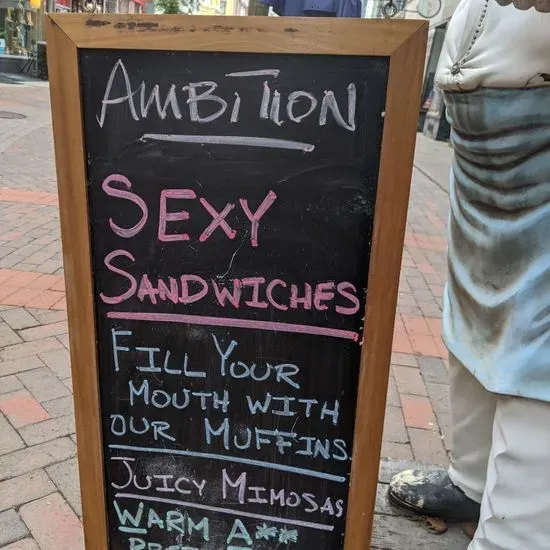 AMBITION
SEXY
SANDWICHES
FILL YOUR
MOUTH WITH
OUR MUFFINS
JUICY MIMOSAS
WARM A**